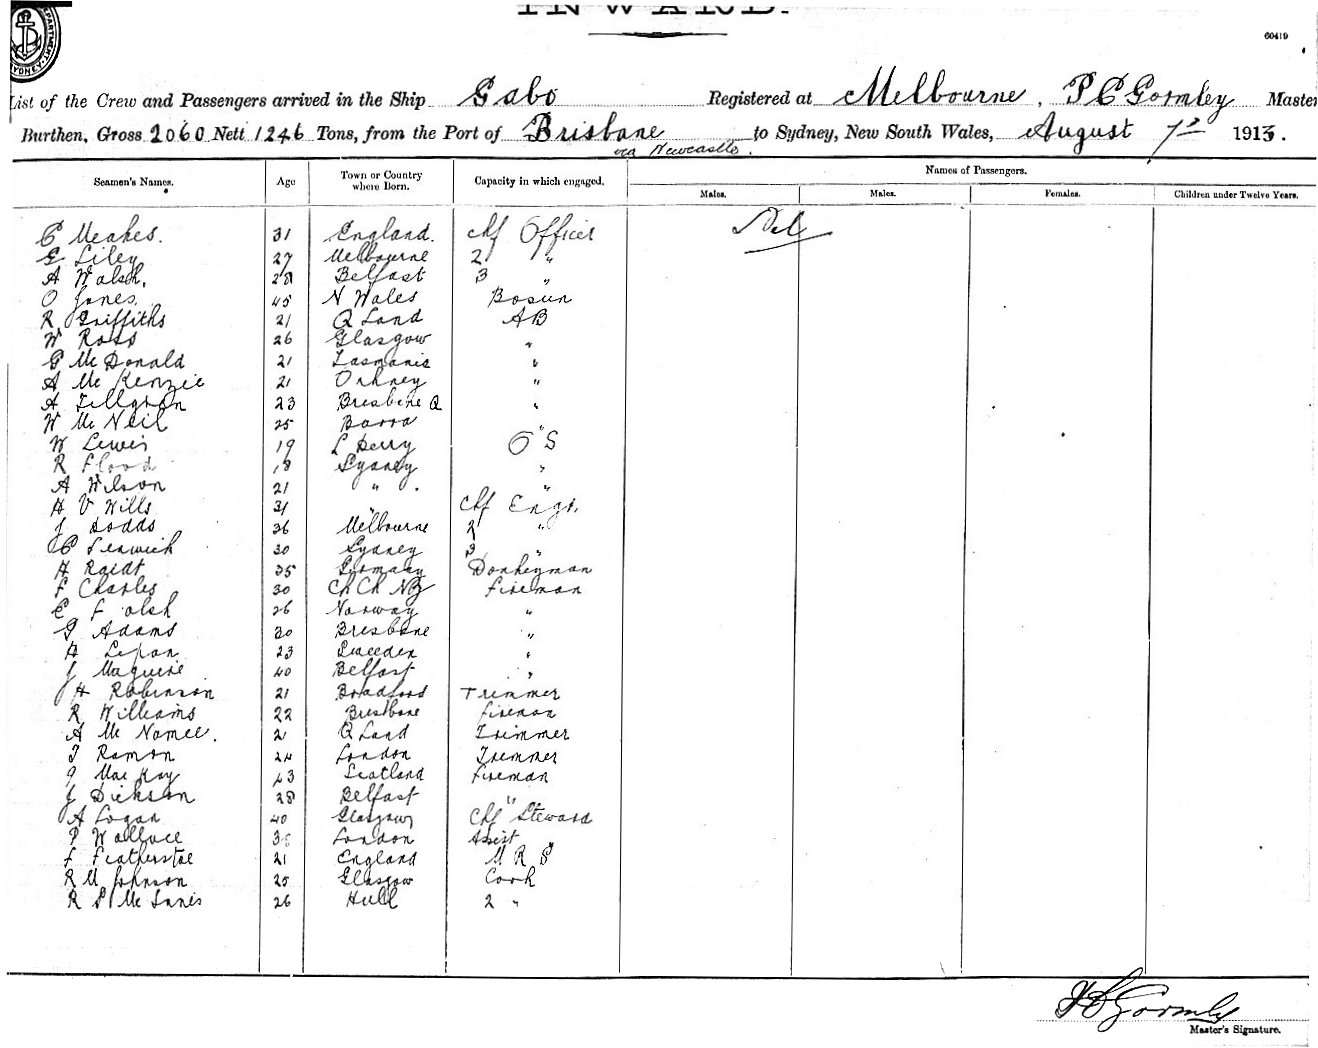 INWARD.
DEPARTMENT. SYDNEY.
60419
List of the Crew and Passengers arrived in the Ship Gabo Registered at Melbourne, P C Gormley Master
Burthen, Gross 2060 Nett 1246 Tons, from the Port of Brisbane to Sydney, New South Wales, August 7th 1913.
via Newcastle.
Seamen's Names. Age Town or Country where Born. Capacity in which engaged. Names of Passengers.
Males. Males. Females. Children under Twelve Years.
C Meakes. 31 England. Chf Officer Nil
E Liley 27 Melbourne 2 "
A Walsh. 28 Belfast 3 "
O Jones. 45 N Wales Bosun
R Griffiths 21 Q Land AB
W Ross 26 Glasgow "
G Mc Donald 21 Tasmania "
A Mc Kenzie 21 Orkney "
A 23 Brisbane Q "
W Mc Neil 25 Barra "
W Lewis 19 L Derry O S
R Flood 18 Sydney "
A Wilson 21 " "
H V Wills 31 " Chf Engr.
J Dodds 36 Melbourne 2 "
C Fenwick 30 Sydney 3 "
H Raidt 35 Germany Donkeyman
F Charles 30 Ch Ch NZ Fireman
E 26 Norway "
G Adams 20 Brisbane "
H 23 Sweeden "
J Maguire 40 Belfast "
H Robinson 21 Bradford Trimmer
R Williams 22 Brisbane Fireman
A Mc Namee. 21 Q Land Trimmer
T Ramon 24 London Tremmer
J Mac Kay 43 Scotland Fireman
J Dickson 28 Belfast "
A Logan 40 Glasgow Chf Steward
P Wallace London Assist
F Featherstoe 21 England M R S
R M Johnson 25 Glasgow Cook
R S Mc Innis 26 Hull 2 "
P C Gormley
Master's Signature.